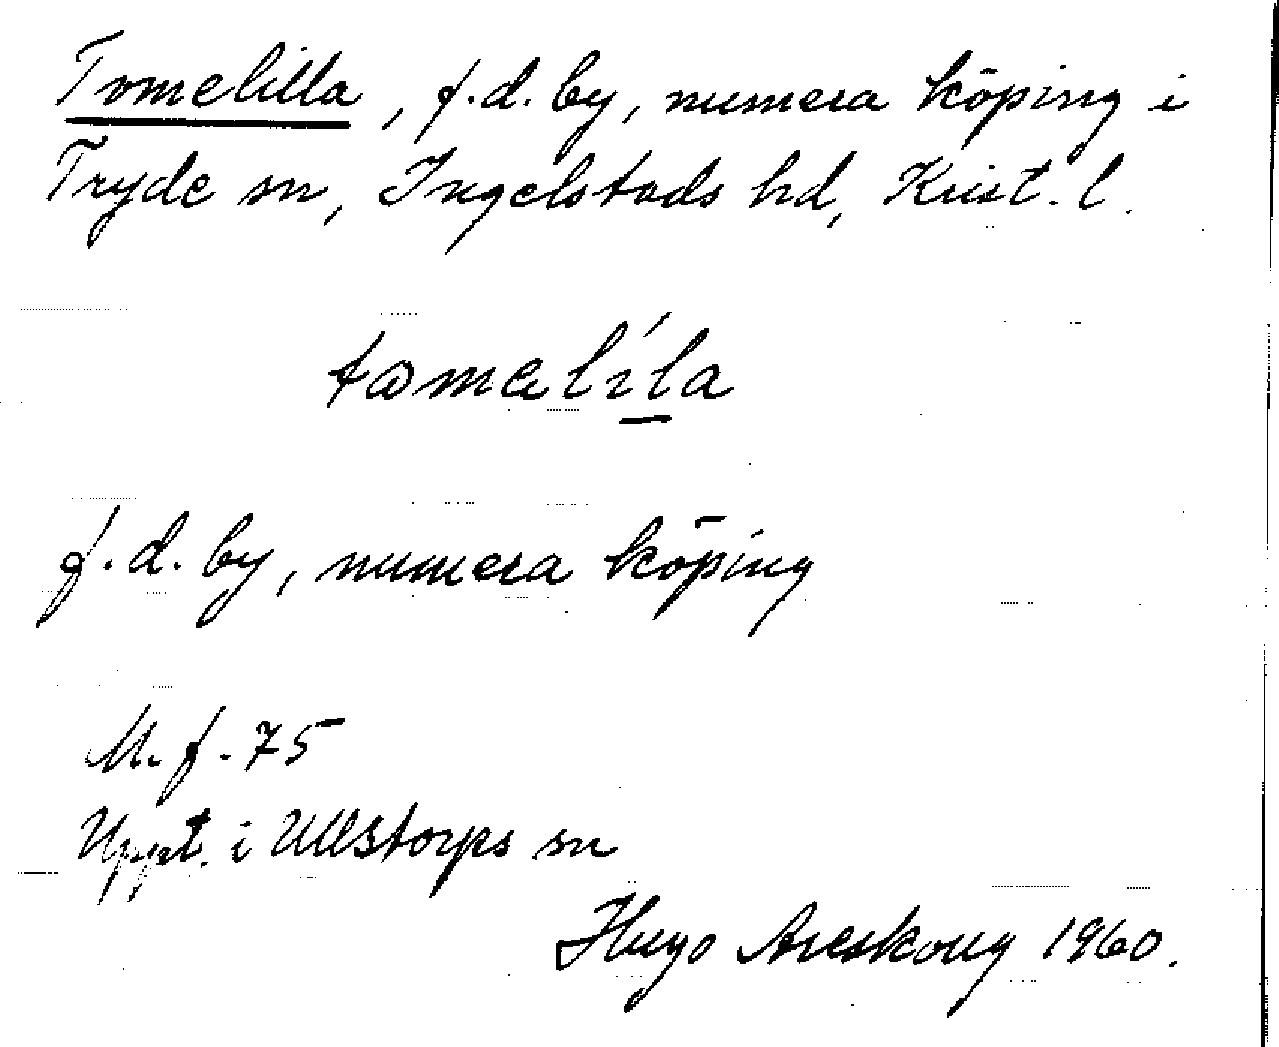 Tomelilla, f.d. by, numera köping i
Tryde sn, Ingelstads hd, Krist. l.
tomelíla
f.d. by, numera köping
M. f. 75
Uppt. i Ullstorps sn
Hugo Areskoug 1960.